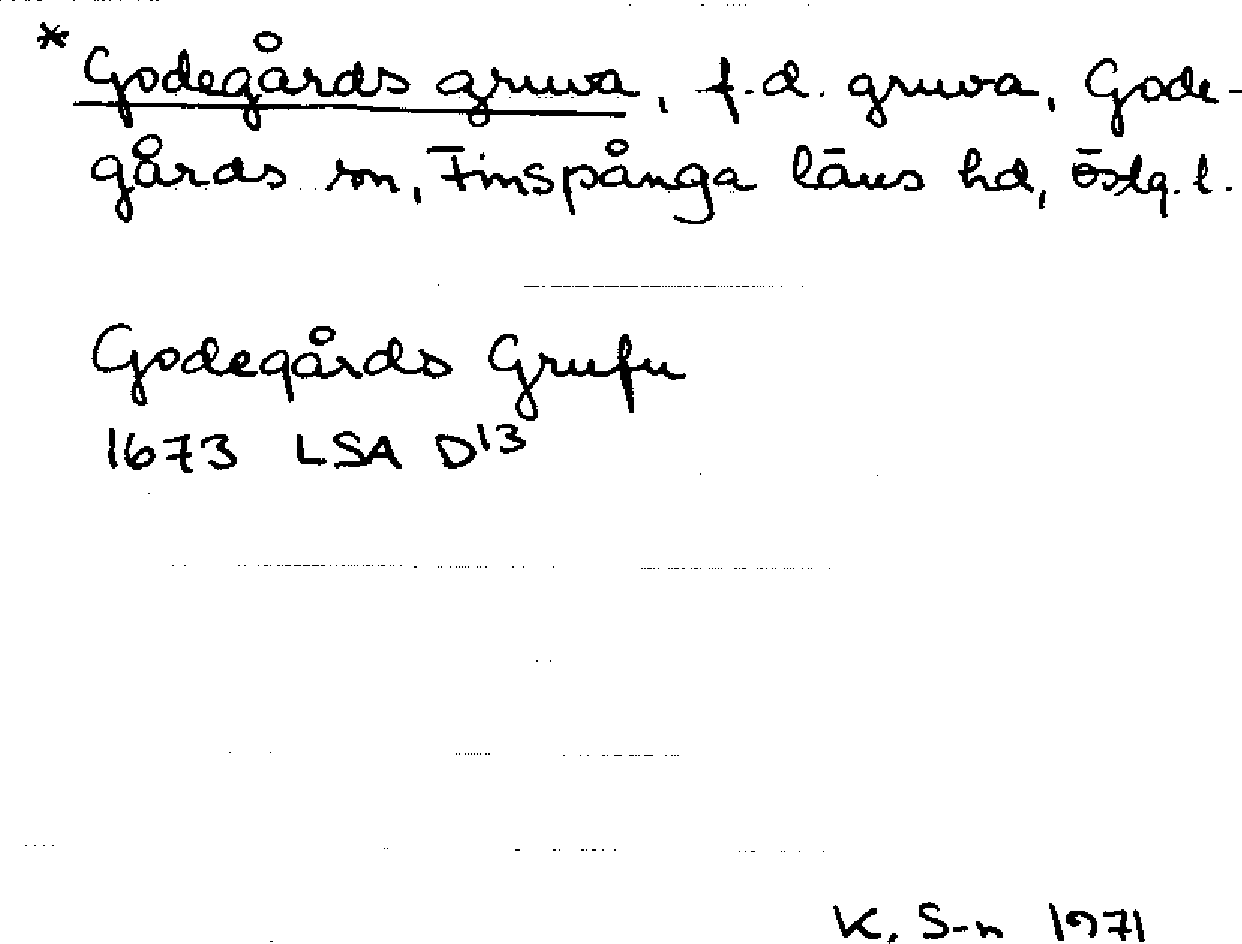 * Godegårds gruva, f.d. gruva, Gode-
gårds sn, Finspånga läns hd, Östg. l.
Godegårds Grufu
1673 LSA D13
K. S-n 1971